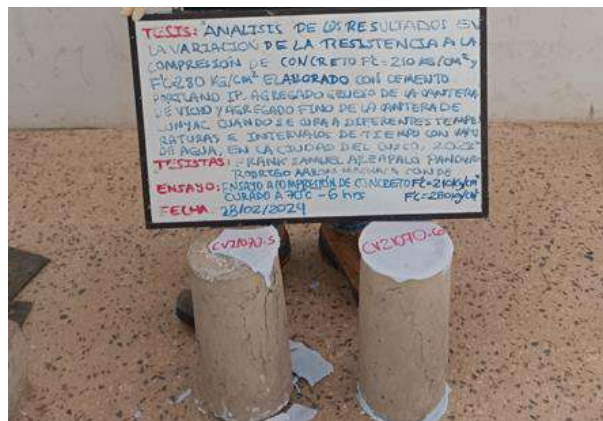 TESIS: "ANALISIS DE LOS RESULTADOS EN
LA VARIACION DE LA RESISTENCIA A LA
COMPRESIÓN DE CONCRETO F'C=210 KG/CM² Y
F'C=280 KG/CM² ELABORADO CON CEMENTO
PORTLAND IP, AGREGADO GRUESO DE LA CANTERA
DE VICHO Y AGREGADO FINO DE LA CANTERA DE
CUNYAC CUANDO SE CURA A DIFERENTES TEMPE
RATURAS E INTERVALOS DE TIEMPO CON VAPOR
DE AGUA, EN LA CIUDAD DEL CUSCO, 2023"
TESISTAS: FRANK SAMUEL
RODRIGO AARON CONDE
ENSAYO: ENSAYO A COMPRESIÓN DE CONCRETO F'C=210kg/cm²
CURADO A 70°C - 6 hrs F'C=280kg/cm²
FECHA: 28/02/2024
CV21070-5
CV21070-6